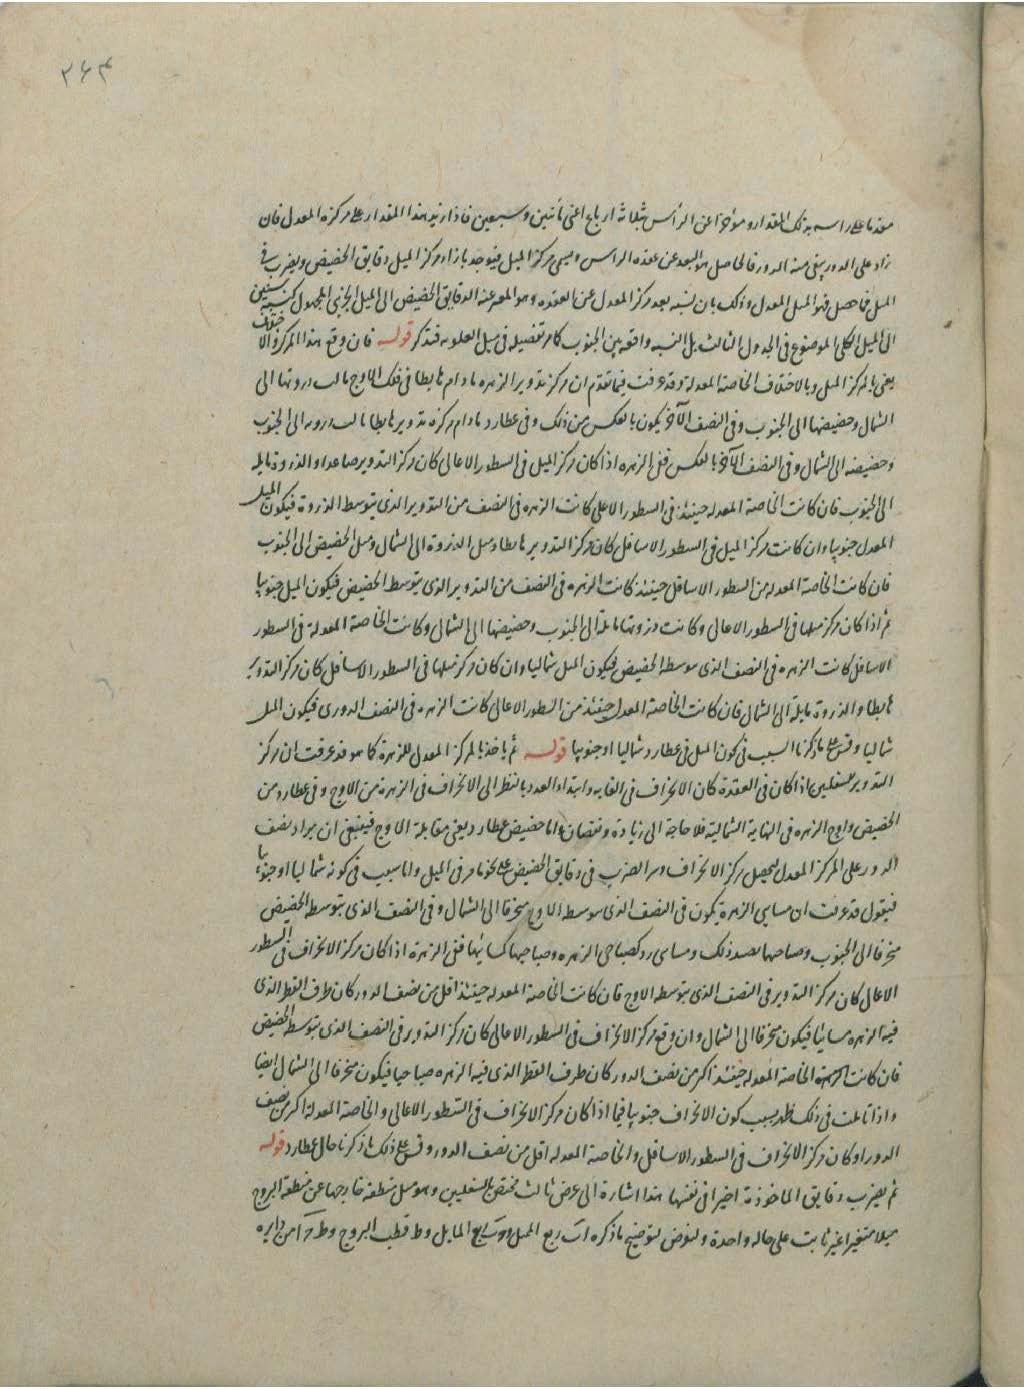 ٣٦٣
مقدما على راسه بذلك المقدار ومؤخرا عن الراس بثلاثة ارباع اعنى مأتين وسبعين فاذا زيد هذا المقدار على مركزه المعدل فان
زاد على الدور ينقى منه الدور فالحاصل هو البعد عن عقدة الراس ويسمى مركز الميل فيوجد بازاء مركز الميل دقايق الحضيض ويضرب فى
الميل فما حصل فهو الميل المعدل وذلك بان نسبة بعد مركز المعدل عن العقدة وهو المعبر عنه الدقايق الحضيض الى الميل الجزئى المجهول كنسبة ستين
الى الميل الكلى الموضوع فى الجدول الثالث بل النسبة واقعة بين الجيوب كما مر تفصيله فى ميل العلوية فتذكر قوله فان وقع هذا المركز والاختلاف
يعنى بالمركز الميل وبالاختلاف الخاصة المعدلة وقد عرفت فيما تقدم ان مركز تدوير الزهرة ما دام هابطا فى فلك الاوج مالت ذروتها الى
الشمال وحضيضها الى الجنوب وفى النصف الآخر يكون بالعكس من ذلك وفى عطارد ما دام مركز تدويره هابطا مالت ذروته الى الجنوب
وحضيضه الى الشمال وفى النصف الآخر بالعكس ففى الزهرة اذا كان مركز الميل فى السطور الاعالى كان مركز التدوير صاعدا والذروة مايلة
الى الجنوب فان كانت الخاصة المعدلة حينئذ فى السطور الاعلى كانت الزهرة فى النصف من التدوير الذى يتوسط الذروة فيكون الميل
المعدل جنوبيا وان كانت مركز الميل فى السطور الاسافل كان مركز التدوير هابطا وميل الذروة الى الشمال وميل الحضيض الى الجنوب
فان كانت الخاصة المعدلة من السطور الاسافل حينئذ كانت الزهرة فى النصف من التدوير الذى يتوسط الحضيض فيكون الميل جنوبيا
ثم اذا كان مركز ميلها فى السطور الاعالى وكانت ذروتها مايلة الى الجنوب وحضيضها الى الشمال وكانت الخاصة المعدلة فى السطور
الاسافل كانت الزهرة فى النصف الذى يتوسطه الحضيض فيكون الميل شماليا وان كان مركز ميلها فى السطور الاسافل كان مركز التدوير
هابطا والذروة مايلة الى الشمال فان كانت الخاصة المعدل حينئذ من السطور الاعالى كانت الزهرة فى النصف الذروى فيكون الميل
شماليا وقس على ما ذكرنا السبب فى كون الميل فى عطارد شماليا او جنوبيا قوله ثم ياخذ بالمركز المعدل للزهرة كما هو قد عرفت ان مركز
التدوير للسفليين اذا كان فى العقدة كان الانحراف فى الغاية وابتداء العدد بالنظر الى الانحراف فى الزهرة من الاوج وفى عطارد من
الحضيض واوج الزهرة فى النهاية الشمالية فلا حاجة الى زيادة ونقصان واما حضيض عطارد يعنى مقابلة الاوج فينبغى ان يزاد نصف
الدور على المركز المعدل ليحصل مركز الانحراف وسر الضرب فى دقايق الحضيض على نحو ما مر فى الميل واما سبب فى كونه شماليا او جنوبيا
فنقول قد عرفت ان مسايى الزهرة يكون فى النصف الذى يتوسطه الاوج منحرفا الى الشمال وفى النصف الذى يتوسطه الحضيض
منحرفا الى الجنوب وصباحها بضد ذلك ومسايى رد كصباحى الزهرة وصباحيها كمسائيها ففى الزهرة اذا كان مركز الانحراف فى السطور
الاعالى كان مركز التدوير فى النصف الذى يتوسطه الاوج فان كانت الخاصة المعدلة حينئذ اقل من نصف الدور كان طرف القطر الذى
فيه الزهرة مسائيا فيكون منحرفا الى الشمال وان وقع مركز الانحراف فى السطور الاعالى كان مركز التدوير فى النصف الذى يتوسطه الحضيض
فان كانت الخاصة المعدلة حينئذ اكثر من نصف الدور كان طرف القطر الذى فيه الزهرة صباحيا فيكون منحرفا الى الشمال ايضا
واذا تاملت فى ذلك ظهر سبب كون الانحراف جنوبيا فيما اذا كان مركز الانحراف فى السطور الاعالى والخاصة المعدلة اكثر من نصف
الدور او كان مركز الانحراف فى السطور الاسافل والخاصة المعدلة اقل من نصف الدور وقس على ذلك ما ذكرنا حال عطارد قوله
ثم يضرب دقايق الماخوذة اخيرا فى نفسها هذا اشارة الى عرض ثالث مختص بالسفليين وهو ميل منطقة خارجها عن منطقة البروج
ميلا متغيرا غير ثابت على حالة واحدة ولنوضح لتوضيح ما ذكره اب ربع الميل و ربع المايل وط قطب البروج وط من دايرة